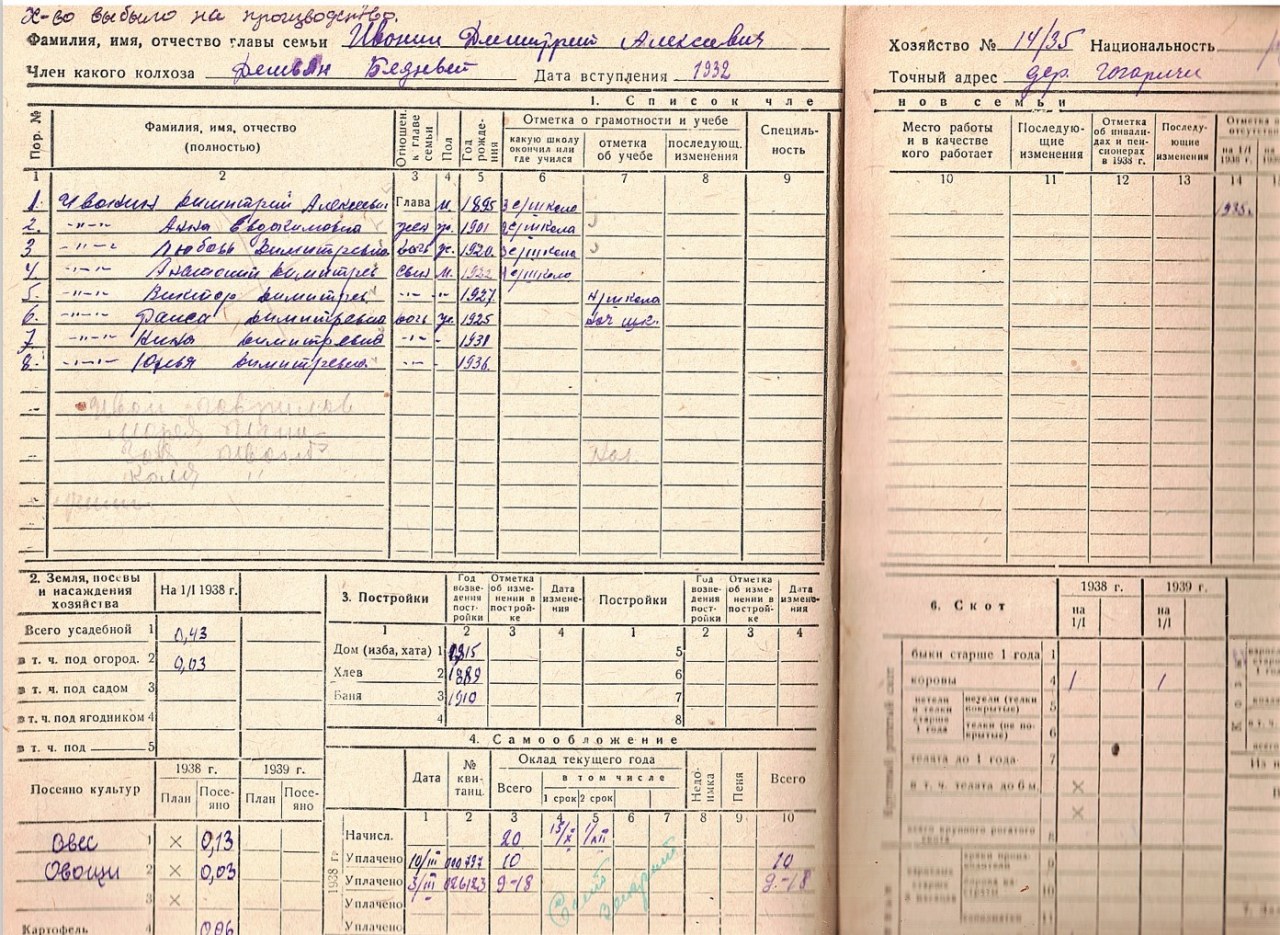 Х-во выбыло на производство.
Фамилия, имя, отчество главы семьи Ивонин Димитрий Алексеевич
Член какого колхоза Демьян Бедный Дата вступления 1932
Хозяйство № 14/35 Национальность
Точный адрес дер. Гогаричи
1. Список чле
нов семьи
Пор. № Фамилия, имя, отчество (полностью) Отношен. к главе семьи Пол Год рожде- ния Отметка о грамотности и учебе какую школу окончил или где учился отметка об учебе последующ. изменения Специль- ность
Место работы и в качестве кого работает Последую- щие изменения Отметка об инвали- дах и пен- сионерах в 1938 г. Последу- ющие изменения на 1/I 1938 г.
1 2 3 4 5 6 7 8 9 10 11 12 13 14
1. Ивонин Димитрий Алексеевич Глава м. 1895 3 с/школа 1935.
2. -"-"- Анна жен ж. 1901 с/школа
3 -"-"- Любовь Димитревна дочь ж. 1920 с/школа
4. -"-"- Димитрев сын м. с/школа
5. -"-"- Виктор Димитрев -"- -"- 1927 н/школа
6. -"-"- Раиса Димитревна дочь ж. 1925
7. -"-"- Нина Димитревна -"- -
8. -"-"- Димитревна -"- - 1936.
Коля "
2. Земля, посевы и насаждения хозяйства На 1/I 1938 г.
Всего усадебной 1 0,43
в т. ч. под огород. 2 0,03
в т. ч. под садом 3
в т. ч. под ягодником 4
в т. ч. под 5
Посеяно культур 1938 г. 1939 г.
План Посе- яно План Посе- яно
Овес 1 × 0,13
Овощи 2 × 0,03
3 ×
Картофель 4 0,06
3. Постройки Год возве- дения пост- ройки Отметка об изме- нении в построй- ке Дата измене- ния Постройки Год возве- дения пост- ройки Отметка об изме- нении в построй- ке Дата измене- ния
1 2 3 4 1 2 3 4
Дом (изба, хата) 1 1915 5
Хлев 2 1889 6
Баня 3 1910 7
4 8
4. Самообложение
Дата № кви- танц. Оклад текущего года Всего в том числе 1 срок 2 срок Недо- имка Пеня Всего
1 2 3 4 5 6 7 8 9 10
1938 г.
Начисл. 20 15/X 1/XII
Уплачено 10/III 000797 10 10
Уплачено 3/III 026123 9-18 9-18
Уплачено
Уплачено
6. Скот 1938 г. 1939 г.
на 1/I на 1/I
быки старше 1 года 1
коровы 4 1 1
нетели и телки старше 1 года нетели (телки покрытые) 5
телки (не по- крытые) 6
телята до 1 года 7
в т. ч. телята до 6 м. ×
×
всего крупного рогатого скота 8
9
10
11